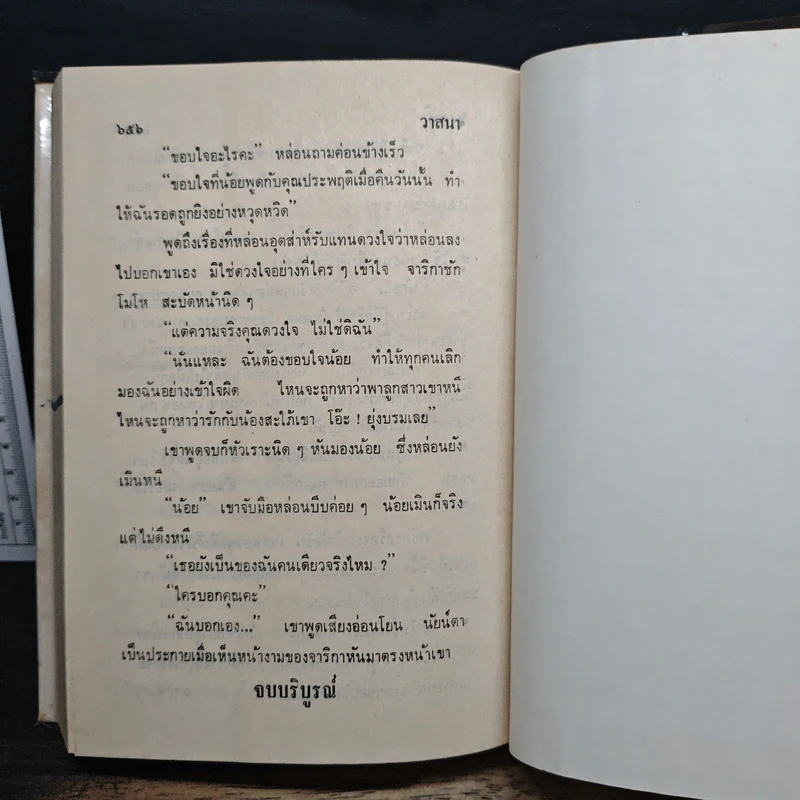 ๖๕๖ วาสนา
“ขอบใจอะไรคะ” หล่อนถามค่อนข้างเร็ว
“ขอบใจที่น้อยพูดกับคุณประพฤติเมื่อคืนวันนั้น ทำ
ให้ฉันรอดถูกยิงอย่างหวุดหวิด”
พูดถึงเรื่องที่หล่อนอุตส่าห์รับแทนดวงใจว่าหล่อนลง
ไปบอกเขาเอง มิใช่ดวงใจอย่างที่ใคร ๆ เข้าใจ จาริกาชัก
โมโห สะบัดหน้านิด ๆ
“แต่ความจริงคุณดวงใจ ไม่ใช่ดิฉัน”
“นั่นแหละ ฉันต้องขอบใจน้อย ทำให้ทุกคนเลิก
มองฉันอย่างเข้าใจผิด ไหนจะถูกหาว่าพาลูกสาวเขาหนี
ไหนจะถูกหาว่ารักกับน้องสะใภ้เขา โอ๊ะ ! ยุ่งบรมเลย”
เขาพูดจบก็หัวเราะนิด ๆ หันมองน้อย ซึ่งหล่อนยัง
เมินหนี
“น้อย” เขาจับมือหล่อนบีบค่อย ๆ น้อยเมินก็จริง
แต่ไม่ดึงหนี
“เธอยังเป็นของฉันคนเดียวจริงไหม ?”
“ใครบอกคุณคะ”
“ฉันบอกเอง...” เขาพูดเสียงอ่อนโยน นัยน์ตา
เป็นประกายเมื่อเห็นหน้างามของจาริกาหันมาตรงหน้าเขา
จบบริบูรณ์